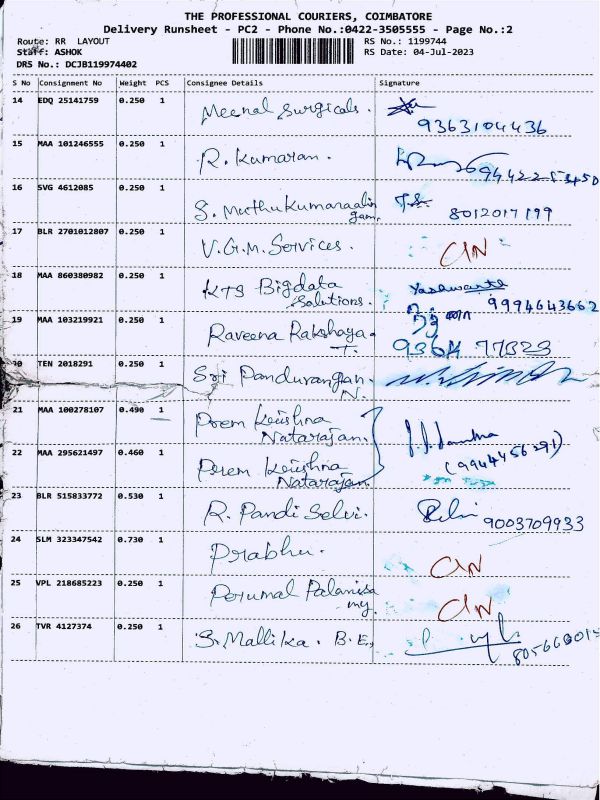 THE PROFESSIONAL COURIERS, COIMBATORE
Delivery Runsheet - PC2 - Phone No.:0422-3505555 - Page No.:2
Route: RR LAYOUT RS No.: 1199744
Staff: ASHOK RS Date: 04-Jul-2023
DRS No.: DCJB119974402
S No Consignment No Weight PCS Consignee Details Signature
14 EDQ 25141759 0.250 1 Meenal Surgicals.
9363104436
15 MAA 101246555 0.250 1 R. Kumaran.
16 SVG 4612085 0.250 1 S. Muthukumaraalin
gam. 8012017199
17 BLR 2701012807 0.250 1 V.G.M. Services. CIN
18 MAA 860380982 0.250 1 KTS Bigdata Yashwanth
Solutions. 9994643662
19 MAA 103219921 0.250 1 Raveena Rakshaya
T. 9364 77323
TEN 2018291 0.250 1 Sri Pandurangan.
N.
21 MAA 100278107 0.490 1 Prem Krishna
Natarajan.
22 MAA 295621497 0.460 1 Prem Krishna (9944456291)
Natarajan
23 BLR 515833772 0.530 1 R. Pandi Selvi. 9003709933
24 SLM 323347542 0.730 1 Prabhu. CIN
25 VPL 218685223 0.250 1 Perumal Palanisa CIN
my.
26 TVR 4127374 0.250 1 S. Mallika. B.E.,